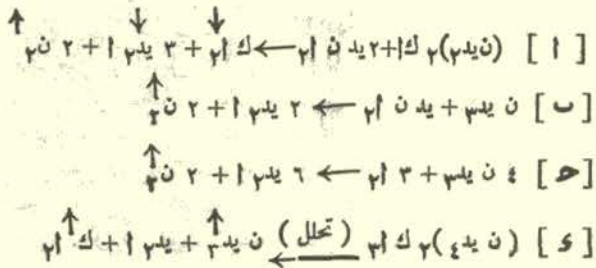 [ ا ] (ن يد٢)٢ ك ا + ٢ يد ن ا٢ ← ك ا٢ ↓ + ٣ يد٢ ↓ ا + ٢ ن٢ ↑
[ ب ] ن يد٣ + يد ن ا٢ ← ٢ يد٢ ا + ٢ ن٢ ↑
[ ح ] ٤ ن يد٣ + ٣ ا٢ ← ٦ يد٢ ا + ٢ ن٢ ↑
[ د ] (ن يد٤)٢ ك ا٣ (تحلل) ← ن يد٣ ↑ + يد٢ ا + ك ا٢ ↑